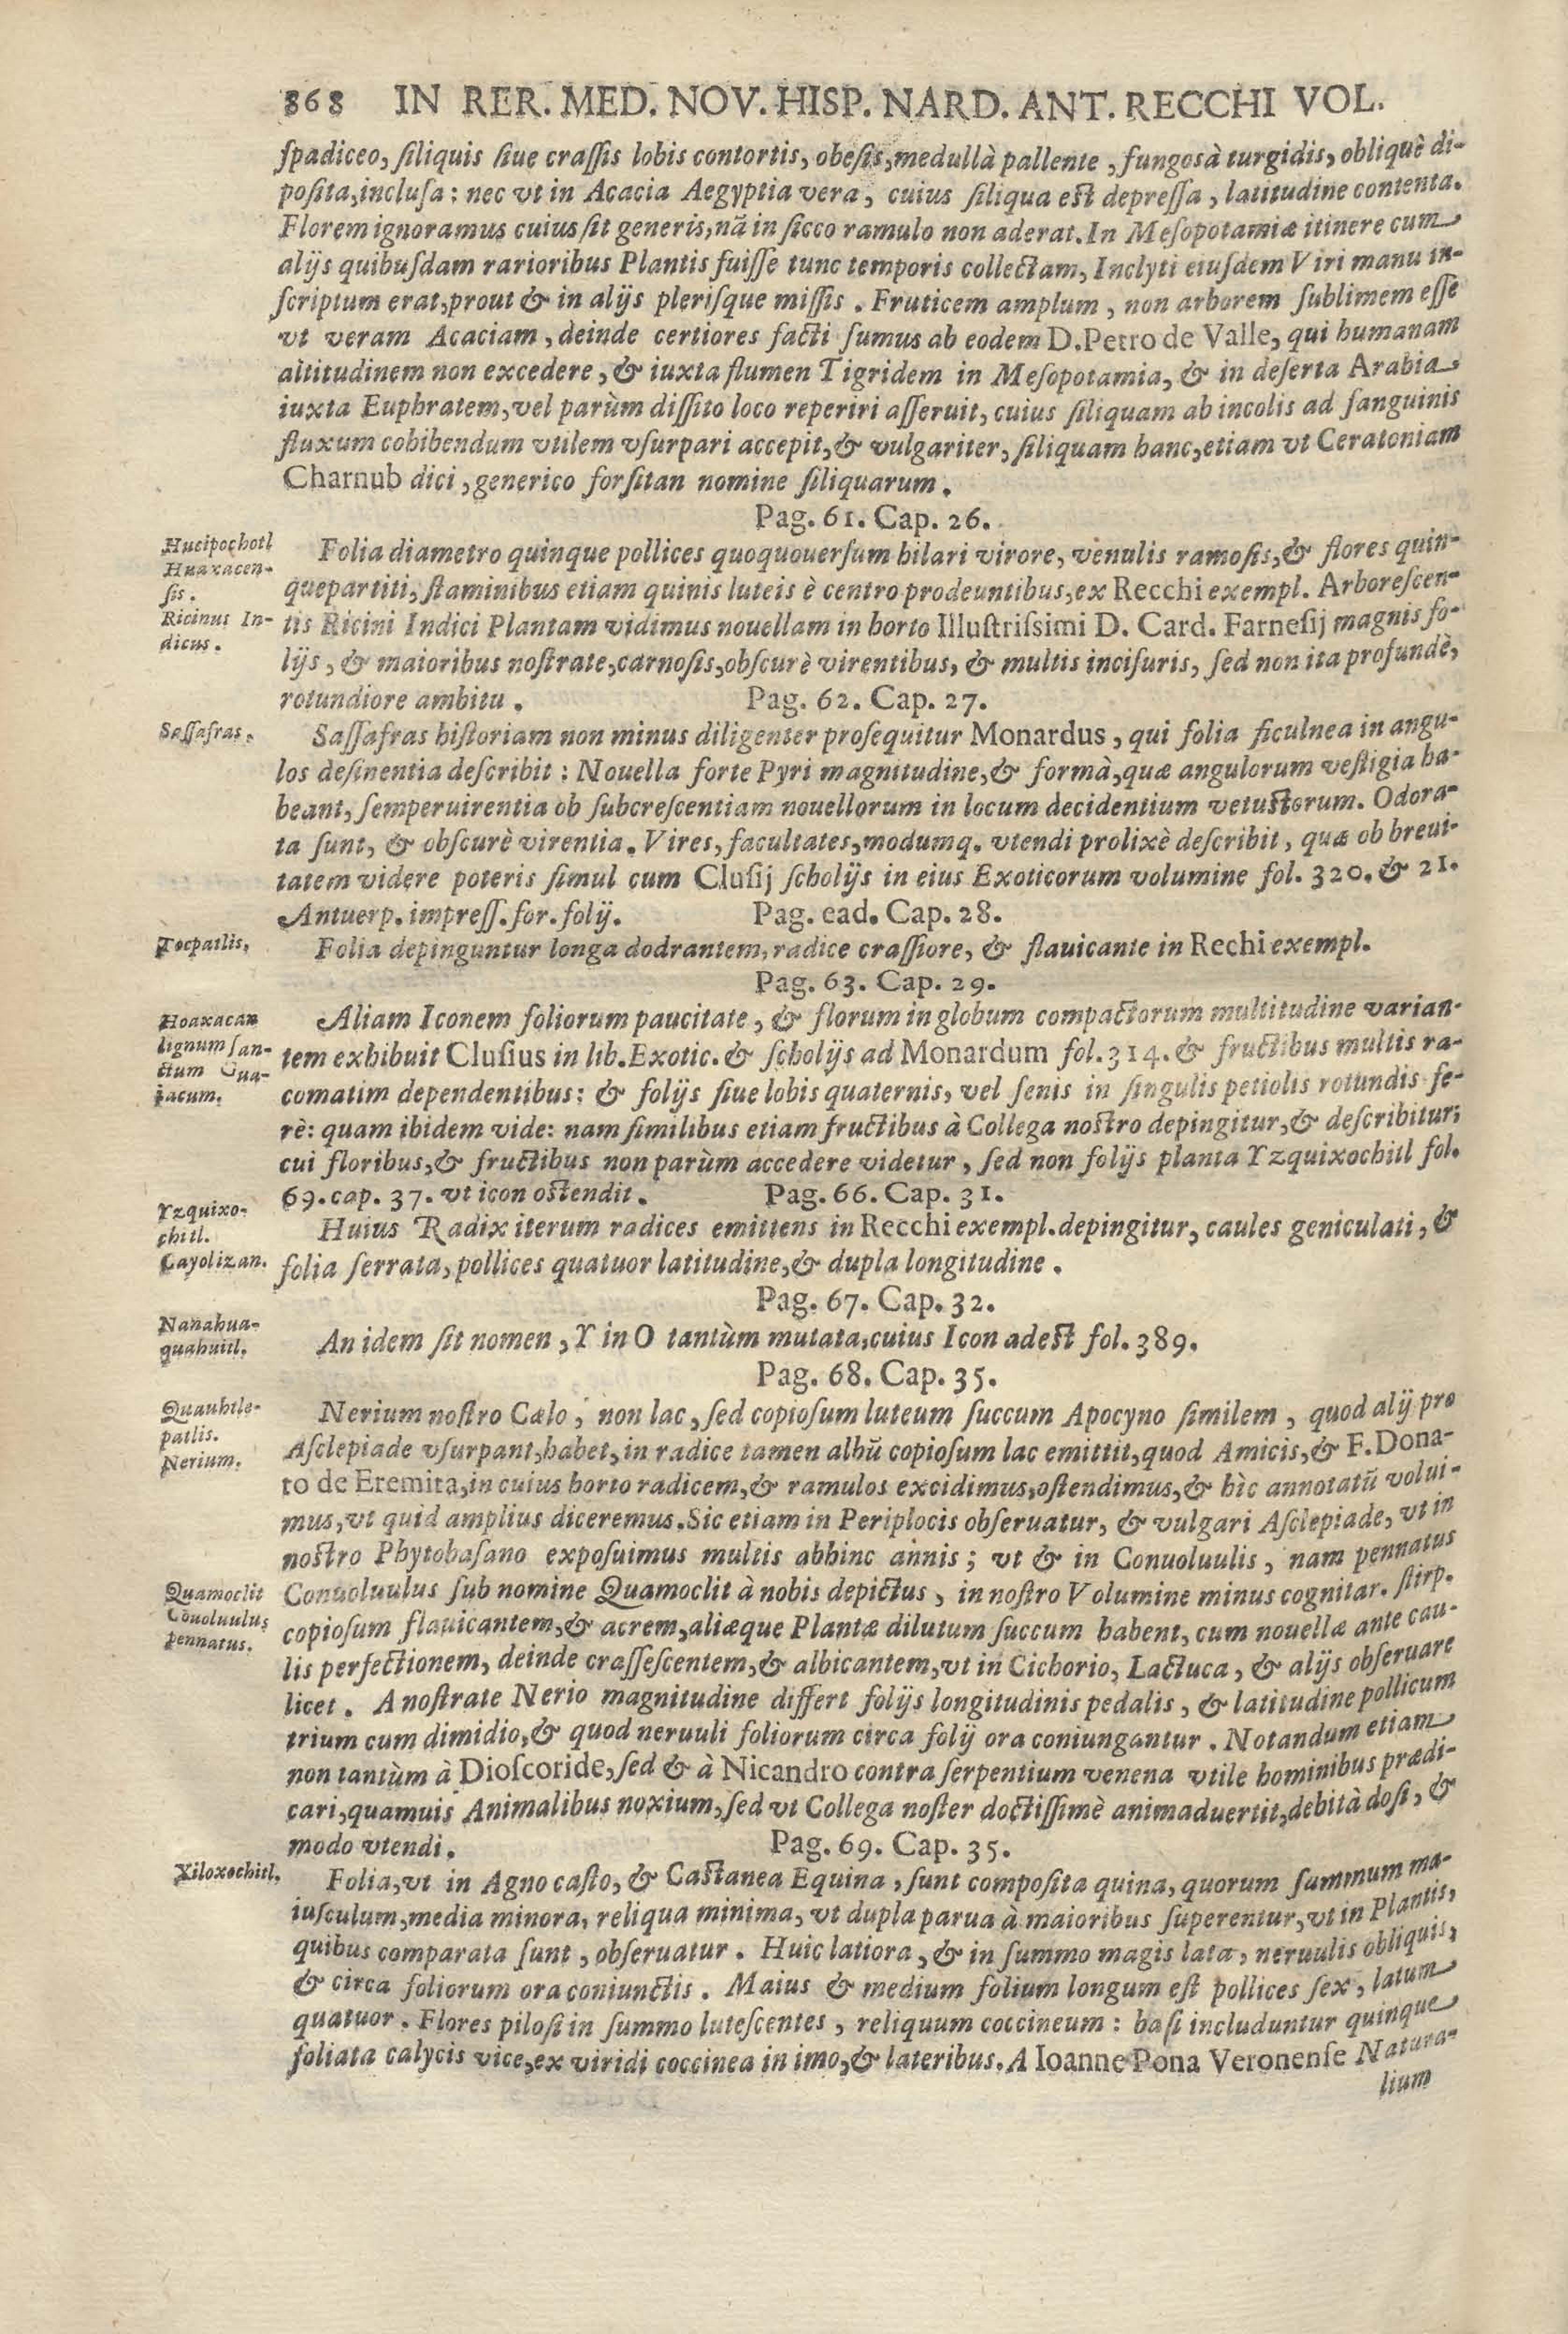 868 IN RER. MED. NOV. HISP. NARD. ANT. RECCHI VOL.
ſpadiceo, ſiliquis ſiue craſſis lobis contortis, obeſis, medullà pallente, fungosà turgidis, obliquè di-
poſita, incluſa: nec vt in Acacia Aegyptia vera, cuius ſiliqua est depreſſa, latitudine contenta.
Florem ignoramus cuius ſit generis, nã in ſicco ramulo non aderat. In Meſopotamiæ itinere cum
alijs quibuſdam rarioribus Plantis fuiſſe tunc temporis collectam, Inclyti eiuſdem Viri manu in-
ſcriptum erat, prout & in alijs pleriſque miſſis. Fruticem amplum, non arborem ſublimem eſſe
vt veram Acaciam, deinde certiores facti ſumus ab eodem D. Petro de Valle, qui humanam
altitudinem non excedere, & iuxta flumen Tigridem in Meſopotamia, & in deſerta Arabia
iuxta Euphratem, vel parùm diſſito loco reperiri aſſeruit, cuius ſiliquam ab incolis ad ſanguinis
fluxum cohibendum vtilem vſurpari accepit, & vulgariter, ſiliquam hanc, etiam vt Ceratoniam
Charnub dici, generico forſitan nomine ſiliquarum.
Pag. 61. Cap. 26.
Hueipochotl
Huaxacen-
ſis.
Ricinus In-
dicus.
Folia diametro quinque pollices quoquouerſum hilari virore, venulis ramoſis, & flores quin-
quepartiti, ſtaminibus etiam quinis luteis è centro prodeuntibus, ex Recchi exempl. Arboreſcen-
tis Ricini Indici Plantam vidimus nouellam in horto Illuſtriſsimi D. Card. Farneſij magnis fo-
lijs, & maioribus noſtrate, carnoſis, obſcurè virentibus, & multis inciſuris, ſed non ita profundè,
rotundiore ambitu. Pag. 62. Cap. 27.
Saſſafras.
Saſſafras hiſtoriam non minus diligenter proſequitur Monardus, qui folia ficulnea in angu-
los deſinentia deſcribit: Nouella forte Pyri magnitudine, & formà, quæ angulorum veſtigia ha-
beant, ſemperuirentia ob ſubcreſcentiam nouellorum in locum decidentium vetustorum. Odora-
ta ſunt, & obſcurè virentia. Vires, facultates, modumq. vtendi prolixè deſcribit, quæ ob breui-
tatem videre poteris ſimul cum Cluſij ſcholijs in eius Exoticorum volumine fol. 320. & 21.
Antuerp. impreſſ. for. folij. Pag. ead. Cap. 28.
Tocpatlis.
Folia depinguntur longa dodrantem, radice craſſiore, & flauicante in Rechi exempl.
Pag. 63. Cap. 29.
Hoaxacan
lignum ſan-
ctum Gua-
iacum.
Aliam Iconem foliorum paucitate, & florum in globum compactorum multitudine varian-
tem exhibuit Cluſius in lib. Exotic. & ſcholijs ad Monardum fol. 314. & fructibus multis ra-
comatim dependentibus: & folijs ſiue lobis quaternis, vel ſenis in ſingulis petiolis rotundis fe-
rè: quam ibidem vide: nam ſimilibus etiam fructibus à Collega nostro depingitur, & deſcribitur;
cui floribus, & fructibus non parùm accedere videtur, ſed non folijs planta Yzquixochitl fol.
69. cap. 37. vt icon ostendit. Pag. 66. Cap. 31.
Yzquixo-
chitl.
Cayolizan.
Huius Radix iterum radices emittens in Recchi exempl. depingitur, caules geniculati, &
folia ſerrata, pollices quatuor latitudine, & dupla longitudine.
Pag. 67. Cap. 32.
Nanahua-
quahuitl.
An idem ſit nomen, Y in O tantùm mutata, cuius Icon adest fol. 389.
Pag. 68. Cap. 35.
Quauhtle-
patlis.
Nerium.
Nerium noſtro Cælo, non lac, ſed copioſum luteum ſuccum Apocyno ſimilem, quod alij pro
Aſclepiade vſurpant, habet, in radice tamen albũ copioſum lac emittit, quod Amicis, & F. Dona-
to de Eremita, in cuius horto radicem, & ramulos excidimus, oſtendimus, & hìc annotatũ volui-
mus, vt quid amplius diceremus. Sic etiam in Periplocis obſeruatur, & vulgari Aſclepiade, vt in
nostro Phytobaſano expoſuimus multis abhinc annis; vt & in Conuoluulis, nam pennatus
Quamoclit
Cõuoluulus
pennatus.
Conuoluulus ſub nomine Quamoclit à nobis depictus, in noſtro Volumine minus cognitar. ſtirp.
copioſum flauicantem, & acrem, aliæque Plantæ dilutum ſuccum habent, cum nouellæ ante cau-
lis perfectionem, deinde craſſeſcentem, & albicantem, vt in Cichorio, Lactuca, & alijs obſeruare
licet. A noſtrate Nerio magnitudine differt folijs longitudinis pedalis, & latitudine pollicum
trium cum dimidio, & quod neruuli foliorum circa folij ora coniungantur. Notandum etiam
non tantùm à Dioſcoride, ſed & à Nicandro contra ſerpentium venena vtile hominibus prædi-
cari, quamuis Animalibus noxium, ſed vt Collega noſter doctiſſimè animaduertit, debità doſi, &
modo vtendi. Pag. 69. Cap. 35.
Xiloxochitl.
Folia, vt in Agno caſto, & Castanea Equina, ſunt compoſita quina, quorum ſummum ma-
iuſculum, media minora, reliqua minima, vt dupla parua à maioribus ſuperentur, vt in Plantis,
quibus comparata ſunt, obſeruatur. Huic latiora, & in ſummo magis lata, neruulis obliquis,
& circa foliorum ora coniunctis. Maius & medium folium longum eſt pollices ſex, latum
quatuor. Flores piloſi in ſummo luteſcentes, reliquum coccineum: baſi includuntur quinque
foliata calycis vice, ex viridi coccinea in imo, & lateribus. A Ioanne Pona Veronenſe Natura-
lium